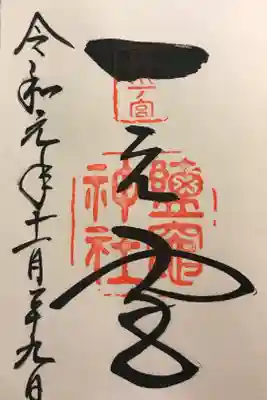 一之宮
鹽竈
神社
令和元年十一月二十九日